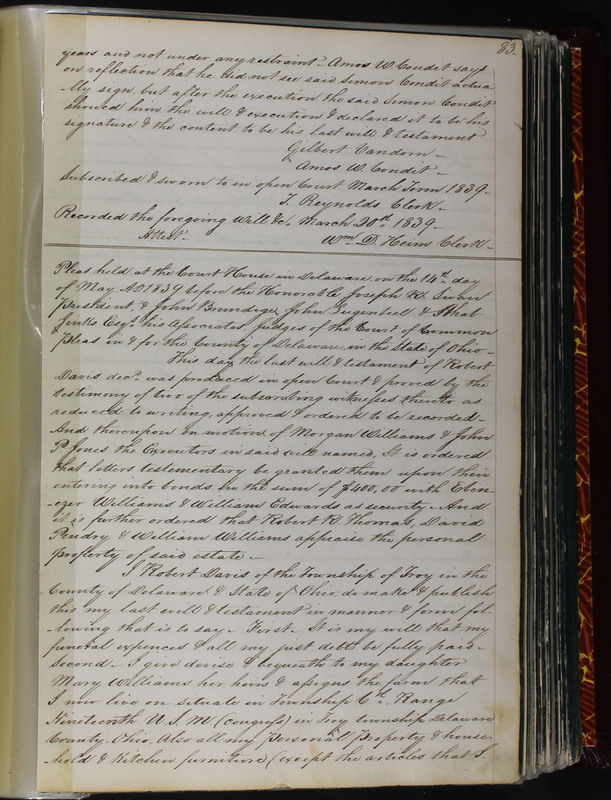 83
years and not under any restraint – Amos W. Condit says
on reflection that he did not see said Simon Condit actua-
-lly sign, but after the execution the said Simon Condit
showed him the will & execution & declared it to be his
signature & the content to be his last will & testament
Gilbert Vandorn –
Amos W. Condit –
Subscribed & sworn to in open Court March Term 1839 –
T. Reynolds Clerk –
Recorded the foregoing Will &c. March 20th 1839 –
Attest. Wm D. Heim Clerk –
Pleas held at the Court House in Delaware, on the 14th day
of May AD 1839 before the Honorable Joseph R. Swan
President, & John Brundige, John & 
Jinks Esqrs his Associates, Judges of the Court of Common
Pleas in & for the County of Delaware, in the State of Ohio –
This day the last will & testament of Robert
Davis decd. was produced in open Court & proved by the
testimony of two of the subscribing witnesses thereto as
reduced to writing, approved & ordered to be recorded –
And thereupon on motion of Morgan Williams & John
P. Jones the Executors in said will named, It is ordered
that letters testementary be granted them upon their
entering into bonds in the sum of $400,00 with Eben-
-ezer Williams & William Edwards as security – And
it is further ordered that Robert R Thomas, David
Pendry & William Williams appraise the personal
property of said estate –
I Robert Davis of the Township of Troy in the
County of Delaware & State of Ohio, do make & publish
this my last will & testament in manner & form fol-
-lowing that is to say – First – It is my will that my
funeral expences & all my just debts be fully paid –
Second – I give devise & bequeath to my daughter
Mary Williams her heirs & assigns the farm that
I now live on situate in Township 6th, Range
Nineteenth U.S.M (congress) in Troy township Delaware
County, Ohio, Also all my Personal Property & house-
-hold & Kitchen furniture (except the articles that I